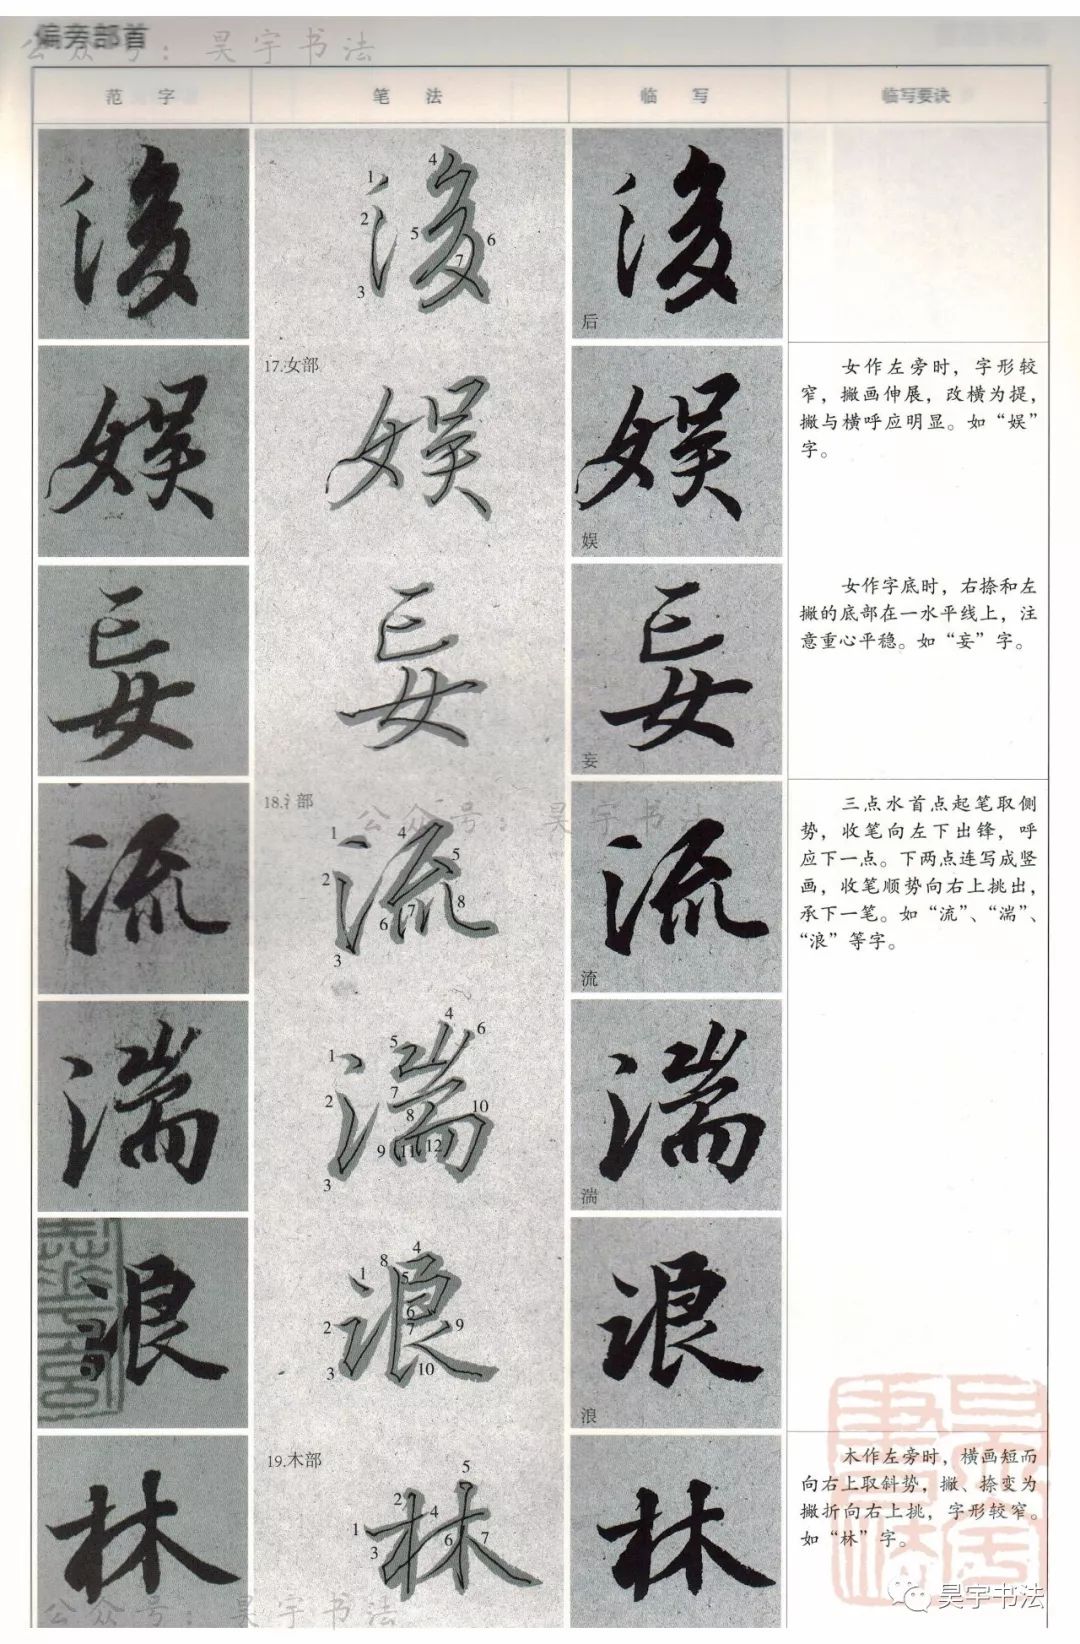 偏旁部首
公众号：昊宇书法
范 字 笔 法 临 写 临写要诀
後 1 2 3 4 5 6 7 後 後
后
娱 17.女部 娱
娱
女作左旁时，字形较
窄，撇画伸展，改横为提，
撇与横呼应明显。如“娱”
字。
妄 妄
妄
女作字底时，右捺和左
撇的底部在一水平线上，注
意重心平稳。如“妄”字。
流 18.氵部 1 2 3 4 5 6 7 8 流
公众号：昊宇书法
流
三点水首点起笔取侧
势，收笔向左下出锋，呼
应下一点。下两点连写成竖
画，收笔顺势向右上挑出，
承下一笔。如“流”、“湍”、
“浪”等字。
湍 1 2 3 4 5 6 7 8 9 10 11 12 湍
湍
浪 1 2 3 4 5 6 7 8 9 10 浪
浪
林 19.木部 1 2 3 4 5 6 7 林
木作左旁时，横画短而
向右上取斜势，撇、捺变为
撇折向右上挑，字形较窄。
如“林”字。
公众号：昊宇书法
昊宇书法